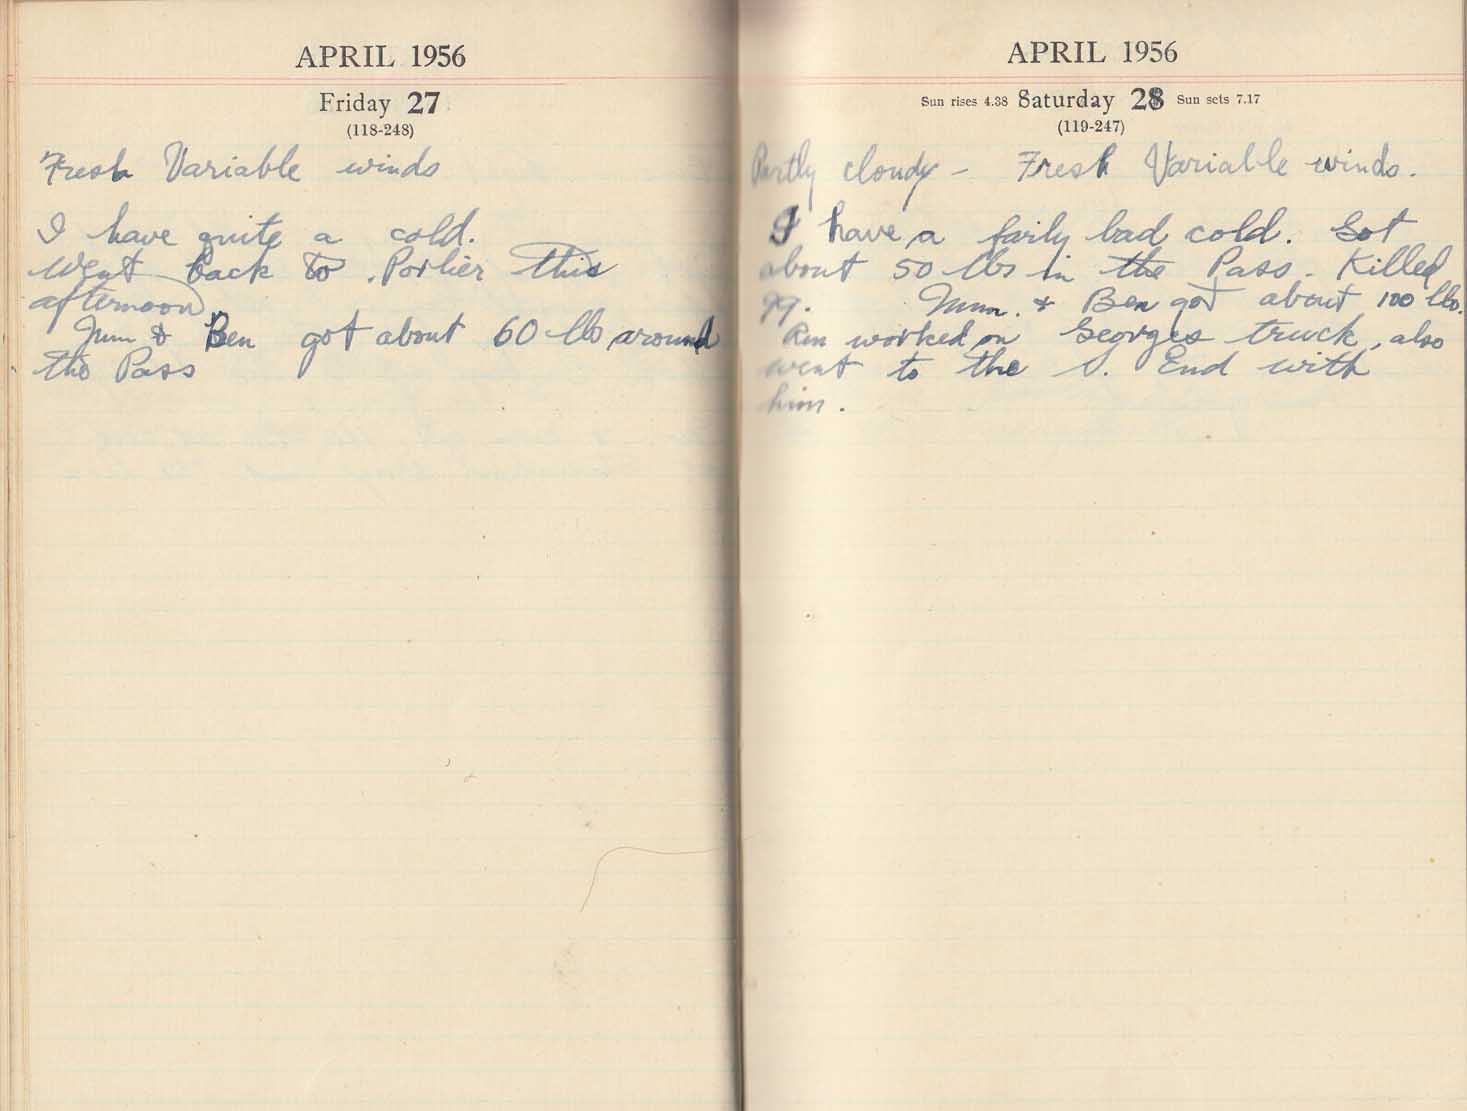 APRIL 1956
Friday 27
(118-248)
Fresh Variable winds
I have quite a cold.
Went back to Porlier this
afternoon
Mum & Ben got about 60 lbs around
the Pass
APRIL 1956
Sun rises 4.38 Saturday 28 Sun sets 7.17
(119-247)
Partly cloudy - Fresh Variable winds.
I have a fairly bad cold. Got
about 50 lbs in the Pass. Killed
99. Mum. & Ben got about 100 lbs.
Ben worked on Georges truck, also
went to the S. End with
him.